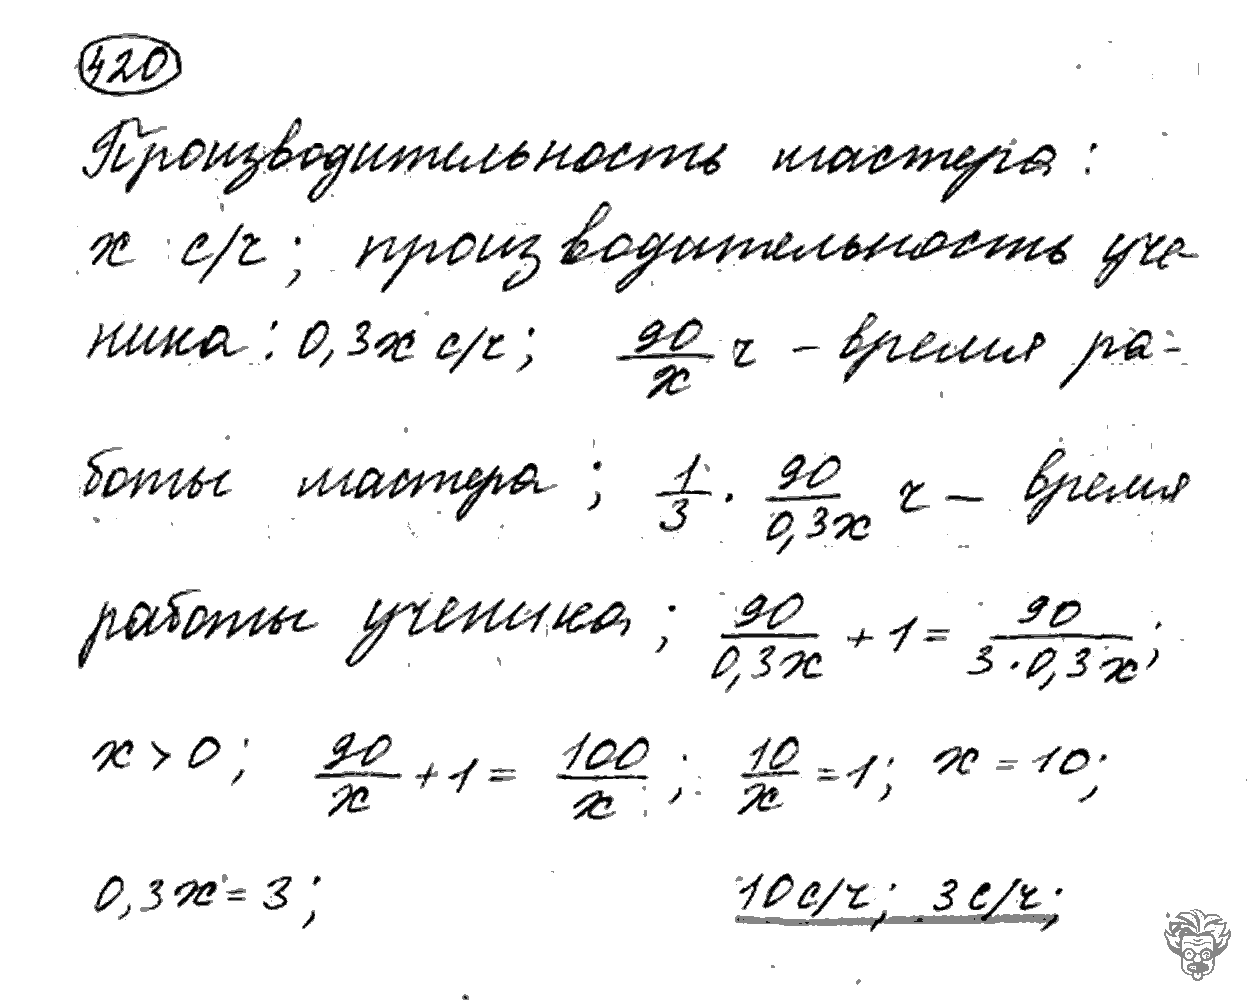 420
Производительность мастера:
x с/ч; производительность уче-
ника: 0,3x с/ч; 90/x ч - время ра-
боты мастера; 1/3 · 90/0,3x ч — время
работы ученика; 90/0,3x + 1 = 90/3·0,3x;
x > 0; 90/x + 1 = 100/x; 10/x = 1; x = 10;
0,3x = 3; 10 с/ч; 3 с/ч;